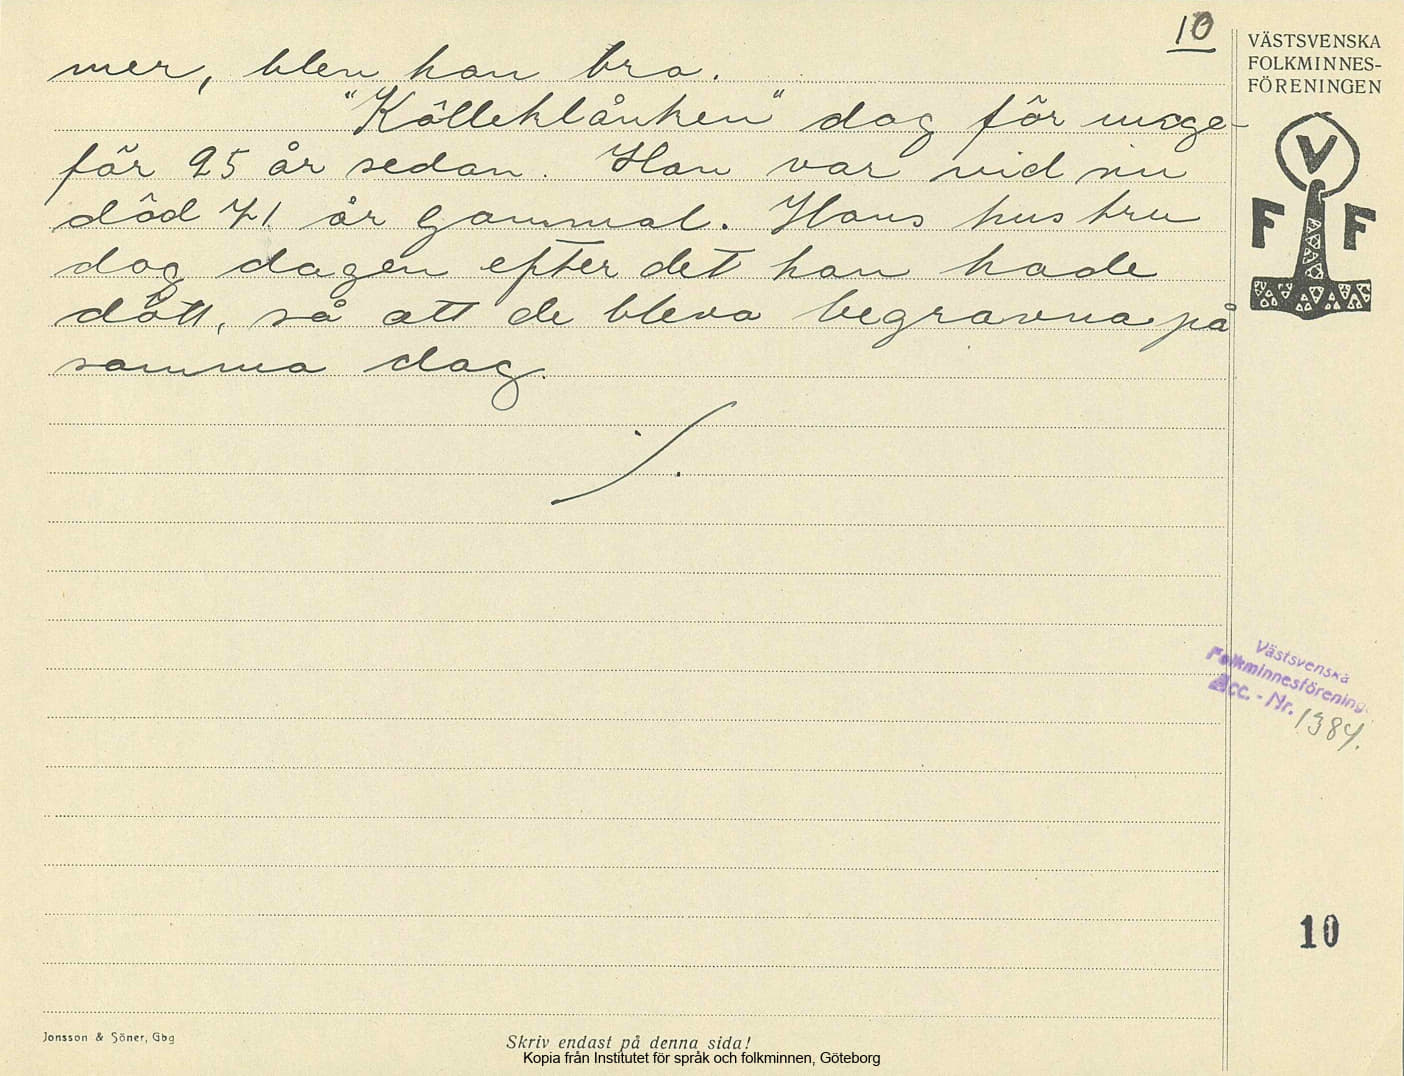 10
mer, blev han bra.
"Kölleklånken" dog för unge-
fär 25 år sedan. Han var vid sin
död 71 år gammal. Hans hustru
dog dagen efter det han hade
dött, så att de bleva begravna på
samma dag.
VÄSTSVENSKA
FOLKMINNES-
FÖRENINGEN
V
F F
Västsvenska
Folkminnesförening
Acc. - Nr. 1384.
10
Jonsson & Söner, Gbg
Skriv endast på denna sida!
Kopia från Institutet för språk och folkminnen, Göteborg